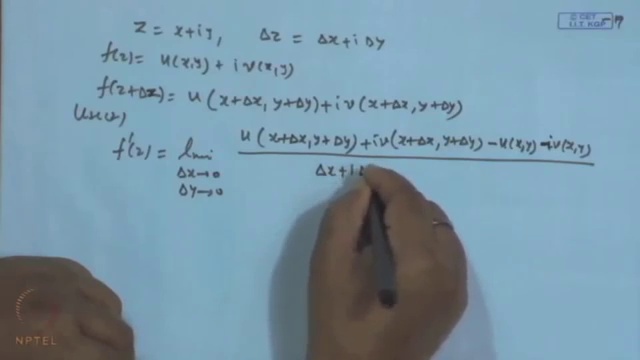 © CET
I.I.T. KGP
z = x+iy, Δz = Δx+iΔy
f(z) = u(x,y) + iv(x,y)
f(z+Δz) = u(x+Δx, y+Δy)+iv(x+Δx, y+Δy)
f'(z) = lim u(x+Δx, y+Δy)+iv(x+Δx, y+Δy)-u(x,y)-iv(x,y)
Δx→0 Δx+i
Δy→0
NPTEL